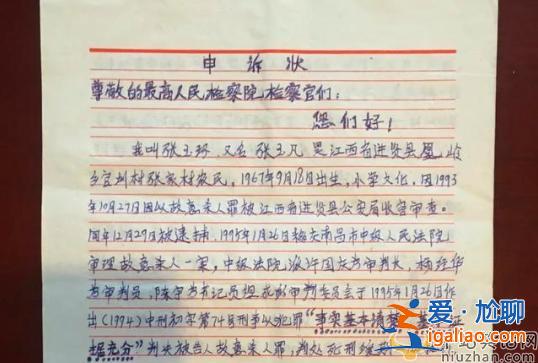 申诉状
尊敬的最高人民检察院检察官们：
您们好！
我叫张玉环，又名张玉凡，是江西省进贤县凰岭
乡官圳村张家村农民，1967年9月18日出生，小学文化，因1993
年10月27日因以故意杀人罪被江西省进贤县公安局收容审查。
同年12月29日被逮捕，1995年1月26日经南昌市中级人民法院
审理故意杀人一案，中级法院派许国庆为审判长，杨经华
为审判员，陈军为书记员组成的审判委员会于1995年1月26日作
出(1994)中刑初字第74号刑事以犯罪“事实基本清楚
据充分”判决被告人故意杀人罪，判处死刑缓
爱·尬聊
igaliao.com
niuzhan.com